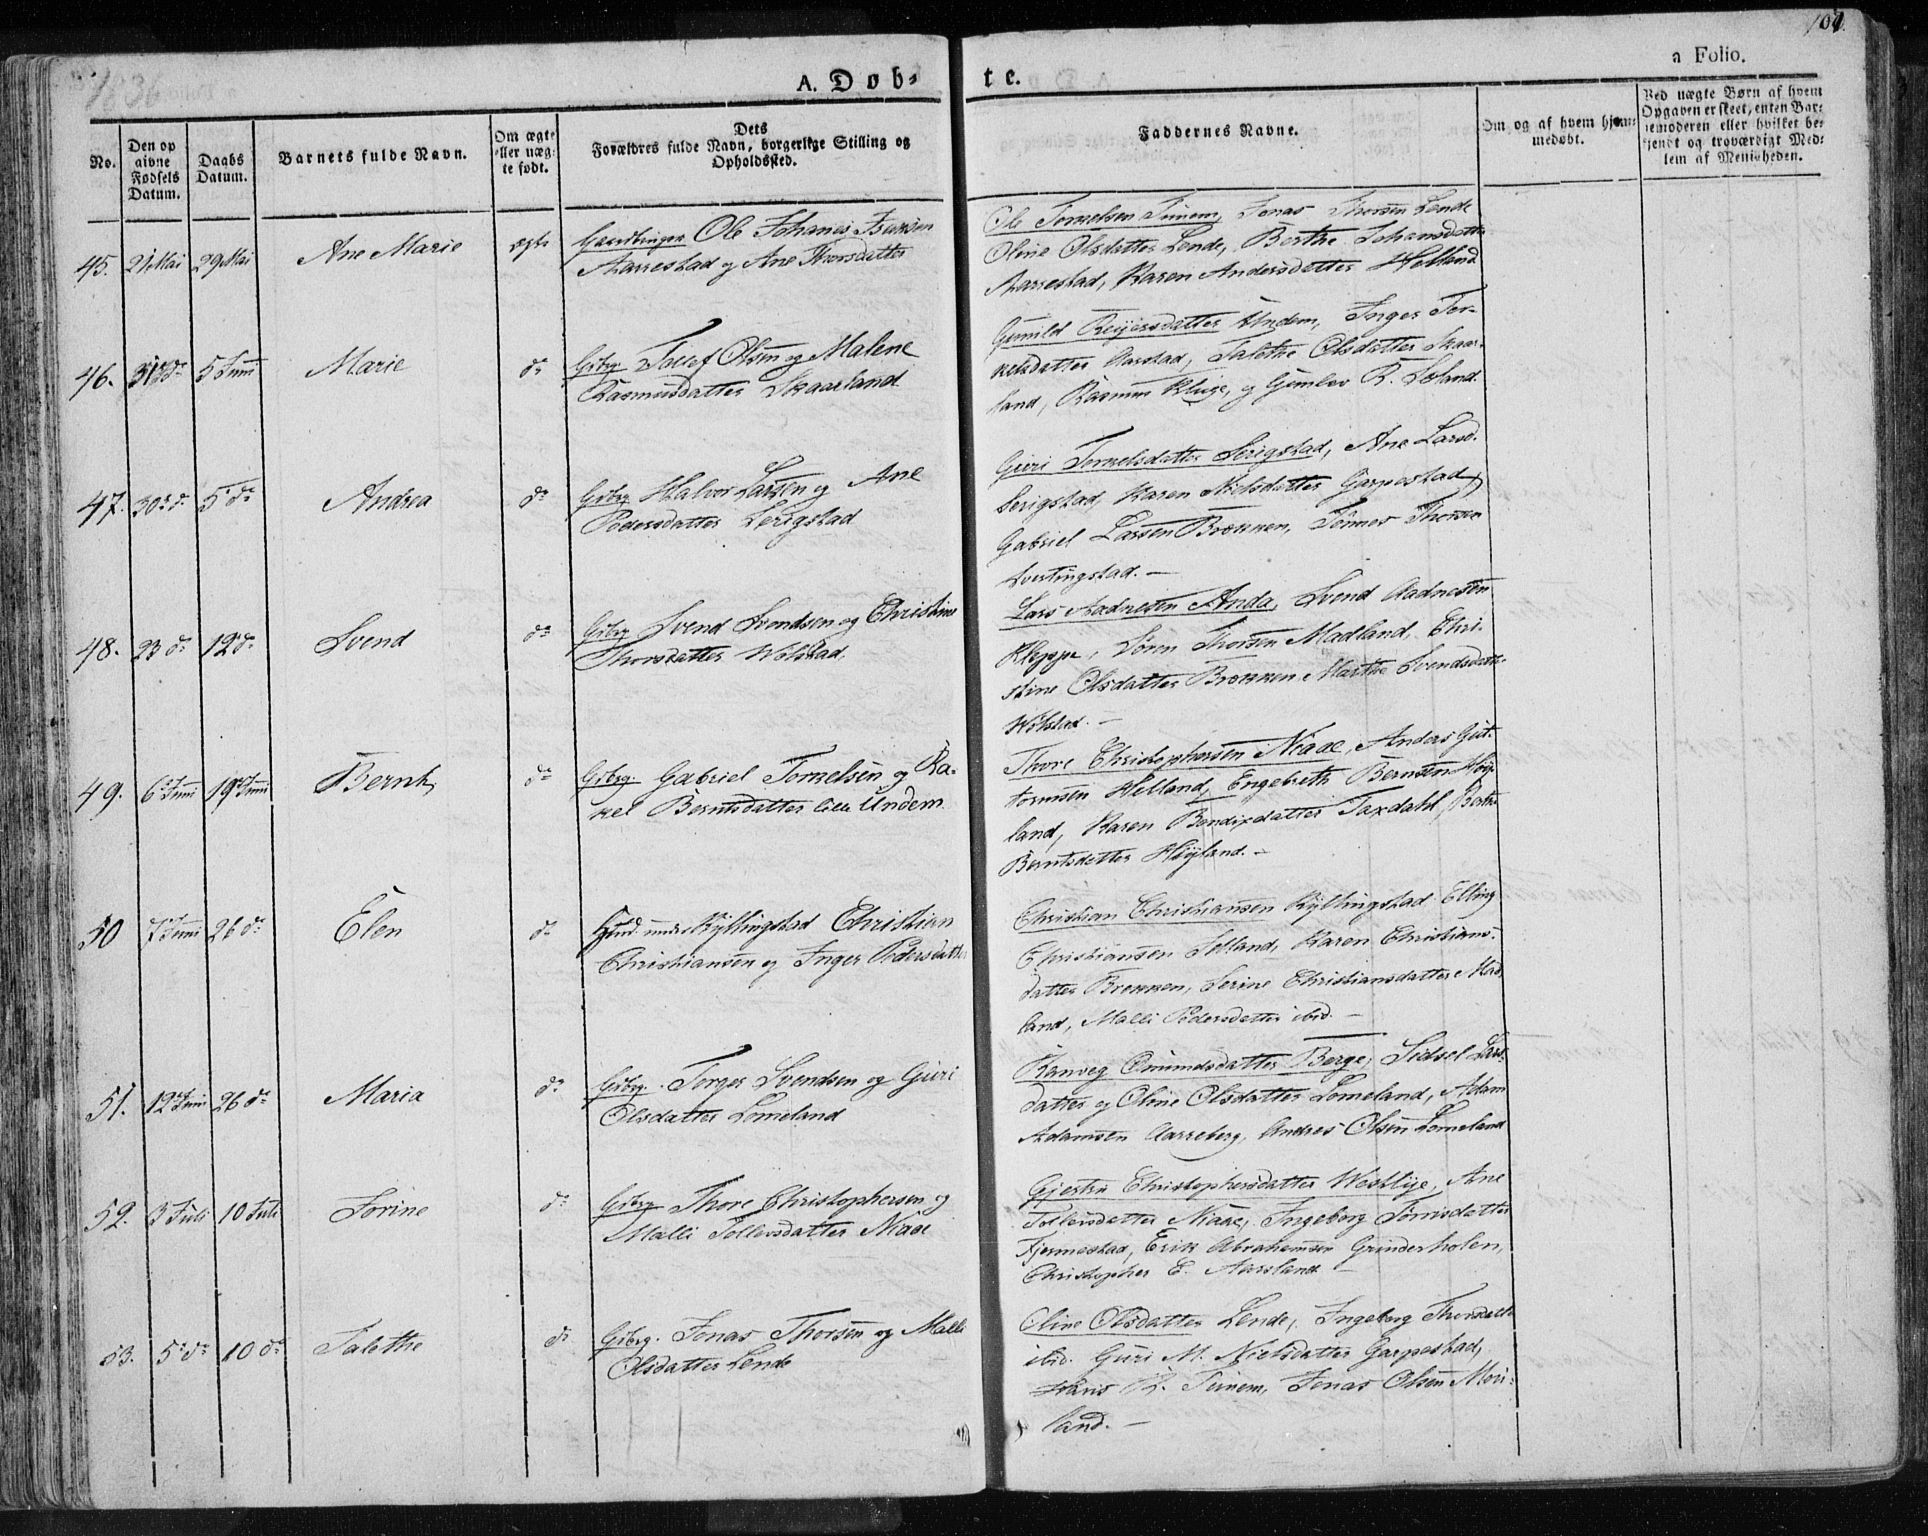 1836
A. Døb-
te.
104
a Folio.
No.
Den op
givne
Fødsels
Datum.
Daabs
Datum.
Barnets fulde Navn.
Om ægte
eller uæg-
te født.
Dets
Forældres fulde Navn, borgerlige Stilling og
Opholdssted.
Faddernes Navne.
Om og af hvem hjem-
medøbt.
Ved uægte Børn af hvem
Opgaven er skeet, enten Bar-
nemoderen eller hvilket be-
kjendt og troværdigt Med-
lem af Menigheden.
45. 21 Mai 29 Mai Ane Marie ægte
Ole Johanes
Aarrestad og Ane Thorsdatter
Ole Torkelsen Tunem, Jonas Thorsen Lende
Oline Olsdatter Lende, Berthe Johansdatter
Aarrestad, Karen Andersdatter Helland
46. 31 do 5 Juni Marie do
Grbrg Tollef Olsen og Malene
Rasmusdatter Skaarland
Gunild Reiersdatter Undem, Inger Tor-
kelsdatter Aarstad, Talethe Olsdatter Skaar-
land, Rasmus Kluge, og Gunlev R. Leland.
47. 30 do 5 do Andrea do
Grbrg Halvor Larsen og Ane
Pedersdatter Serigstad
Guri Torkelsdatter Serigstad, Ane Larsd.
Serigstad, Karen Nielsdatter Garpestad,
Gabriel Larsen Brekken, Tønnes Thorsen
Svertingstad. —
48. 23 do 12 do Svend do
Grbrg Svend Svendsen og Christine
Thorsdatter Wolstad.
Lars Aadnesen Anda, Svend Aadnesen
Kleppe, Søren Thorsen Madland, Chri-
stine Olsdatter Brekken, Marthe Svendsdatter
Wolstad. —
49. 6 Juni 19 Juni Bernt, do
Grbrg. Gabriel Torkelsen og Ra-
kel Berntsdatter lille Undem
Thore Christophersen Niaae, Anders Gut-
tormsen Helland, Engebreth Berntsen Høy-
land, Karen Bendixdatter Taxdahl, Berthe
Berntsdatter Høyland. —
50 7 Juni 26 do Elen do
Huusmd. under Kyllingstad Christian
Christiansen og Inger Pedersdatter
Christian Christiansen Kyllingstad Elling
Christiansen Selland, Karen Christians-
datter Brekken, Serine Christiansdatter Mad-
land, Malli Pedersdatter ibid. —
51. 12 Juni 26 do Maria do
Grbrg. Torger Svendsen og Guri
Olsdatter Lomeland
Ranveg Omundsdatter Berge, Sidsel Lars-
datter og Oline Olsdatter Lomeland, Adam
Adamsen Aarreberg, Andres Olsen Lomeland
52. 3 Juli 10 Juli Sørine do
Grbrg Thore Christophersen og
Malli Tollevsdatter Niaae
Gjertru Christophersdatter Westlye, Ane
Tollevsdatter Niaae, Ingeborg Tønnisdatter
Fjermestad, Erik Abrahamsen Grinderholen,
Christopher E. Aarsland —
53. 5 do 10 do Talethe do
Grbrg. Jonas Thorsen og Malli
Olsdatter Lende
Oline Olsdatter Lende, Ingeborg Thorsdatter
ibid. Guri M. Nielsdatter Garpestad,
Hans R. Tunem, Jonas Olsen Moi-
land. —